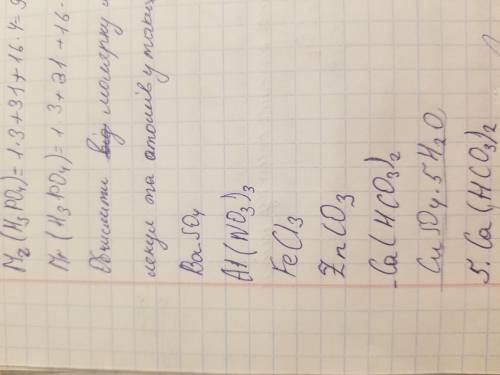 Mr (H₃PO₄) = 1·3+31+16·4=9
Mr (H₃PO₄) = 1·3+31+16·
Обчислити молярну
та атомів у таких
BaSO₄
Al(NO₃)₃
FeCl₃
ZnCO₃
Ca(HCO₃)₂
CuSO₄·5H₂O
5. Ca(HCO₃)₂